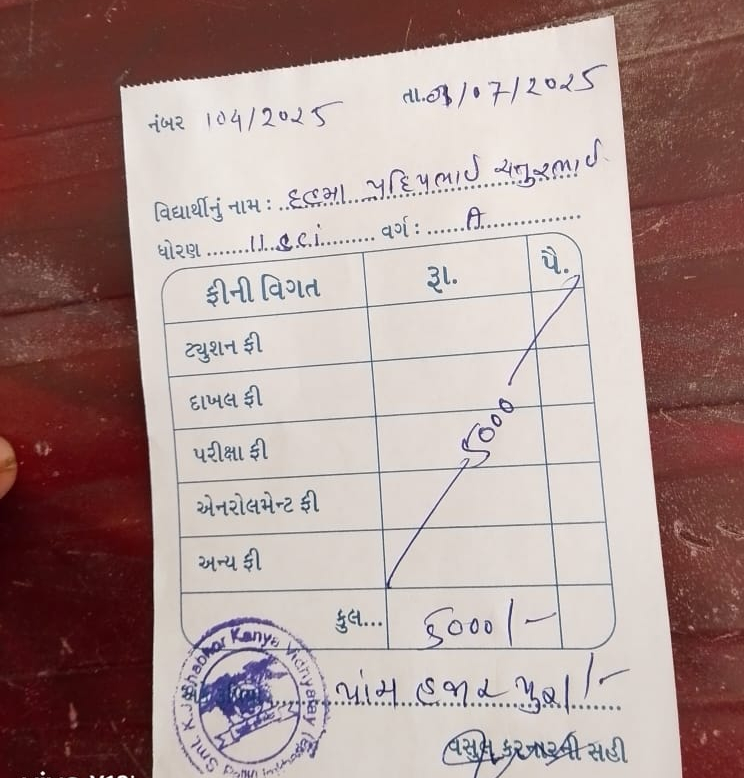 નંબર 104/2025 તા. /07/2025
વિદ્યાર્થીનું નામ : પ્રદિપભાઈ ચતુરભાઈ
ધોરણ 11 sci વર્ગ : A
ફીની વિગત રૂા. પૈ.
ટ્યુશન ફી
દાખલ ફી
પરીક્ષા ફી
5000
એનરોલમેન્ટ ફી
અન્ય ફી
કુલ... 5000/-
પાંચ હજાર પુરા/-
વસુલ કરનારની સહી
Kanya Vidhyalay